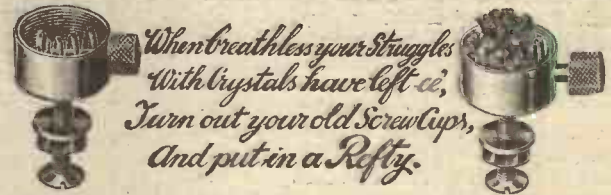 When breathless your Struggles
With Crystals have left ee,
Turn out your old Screw Cups,
And put in a Refty.